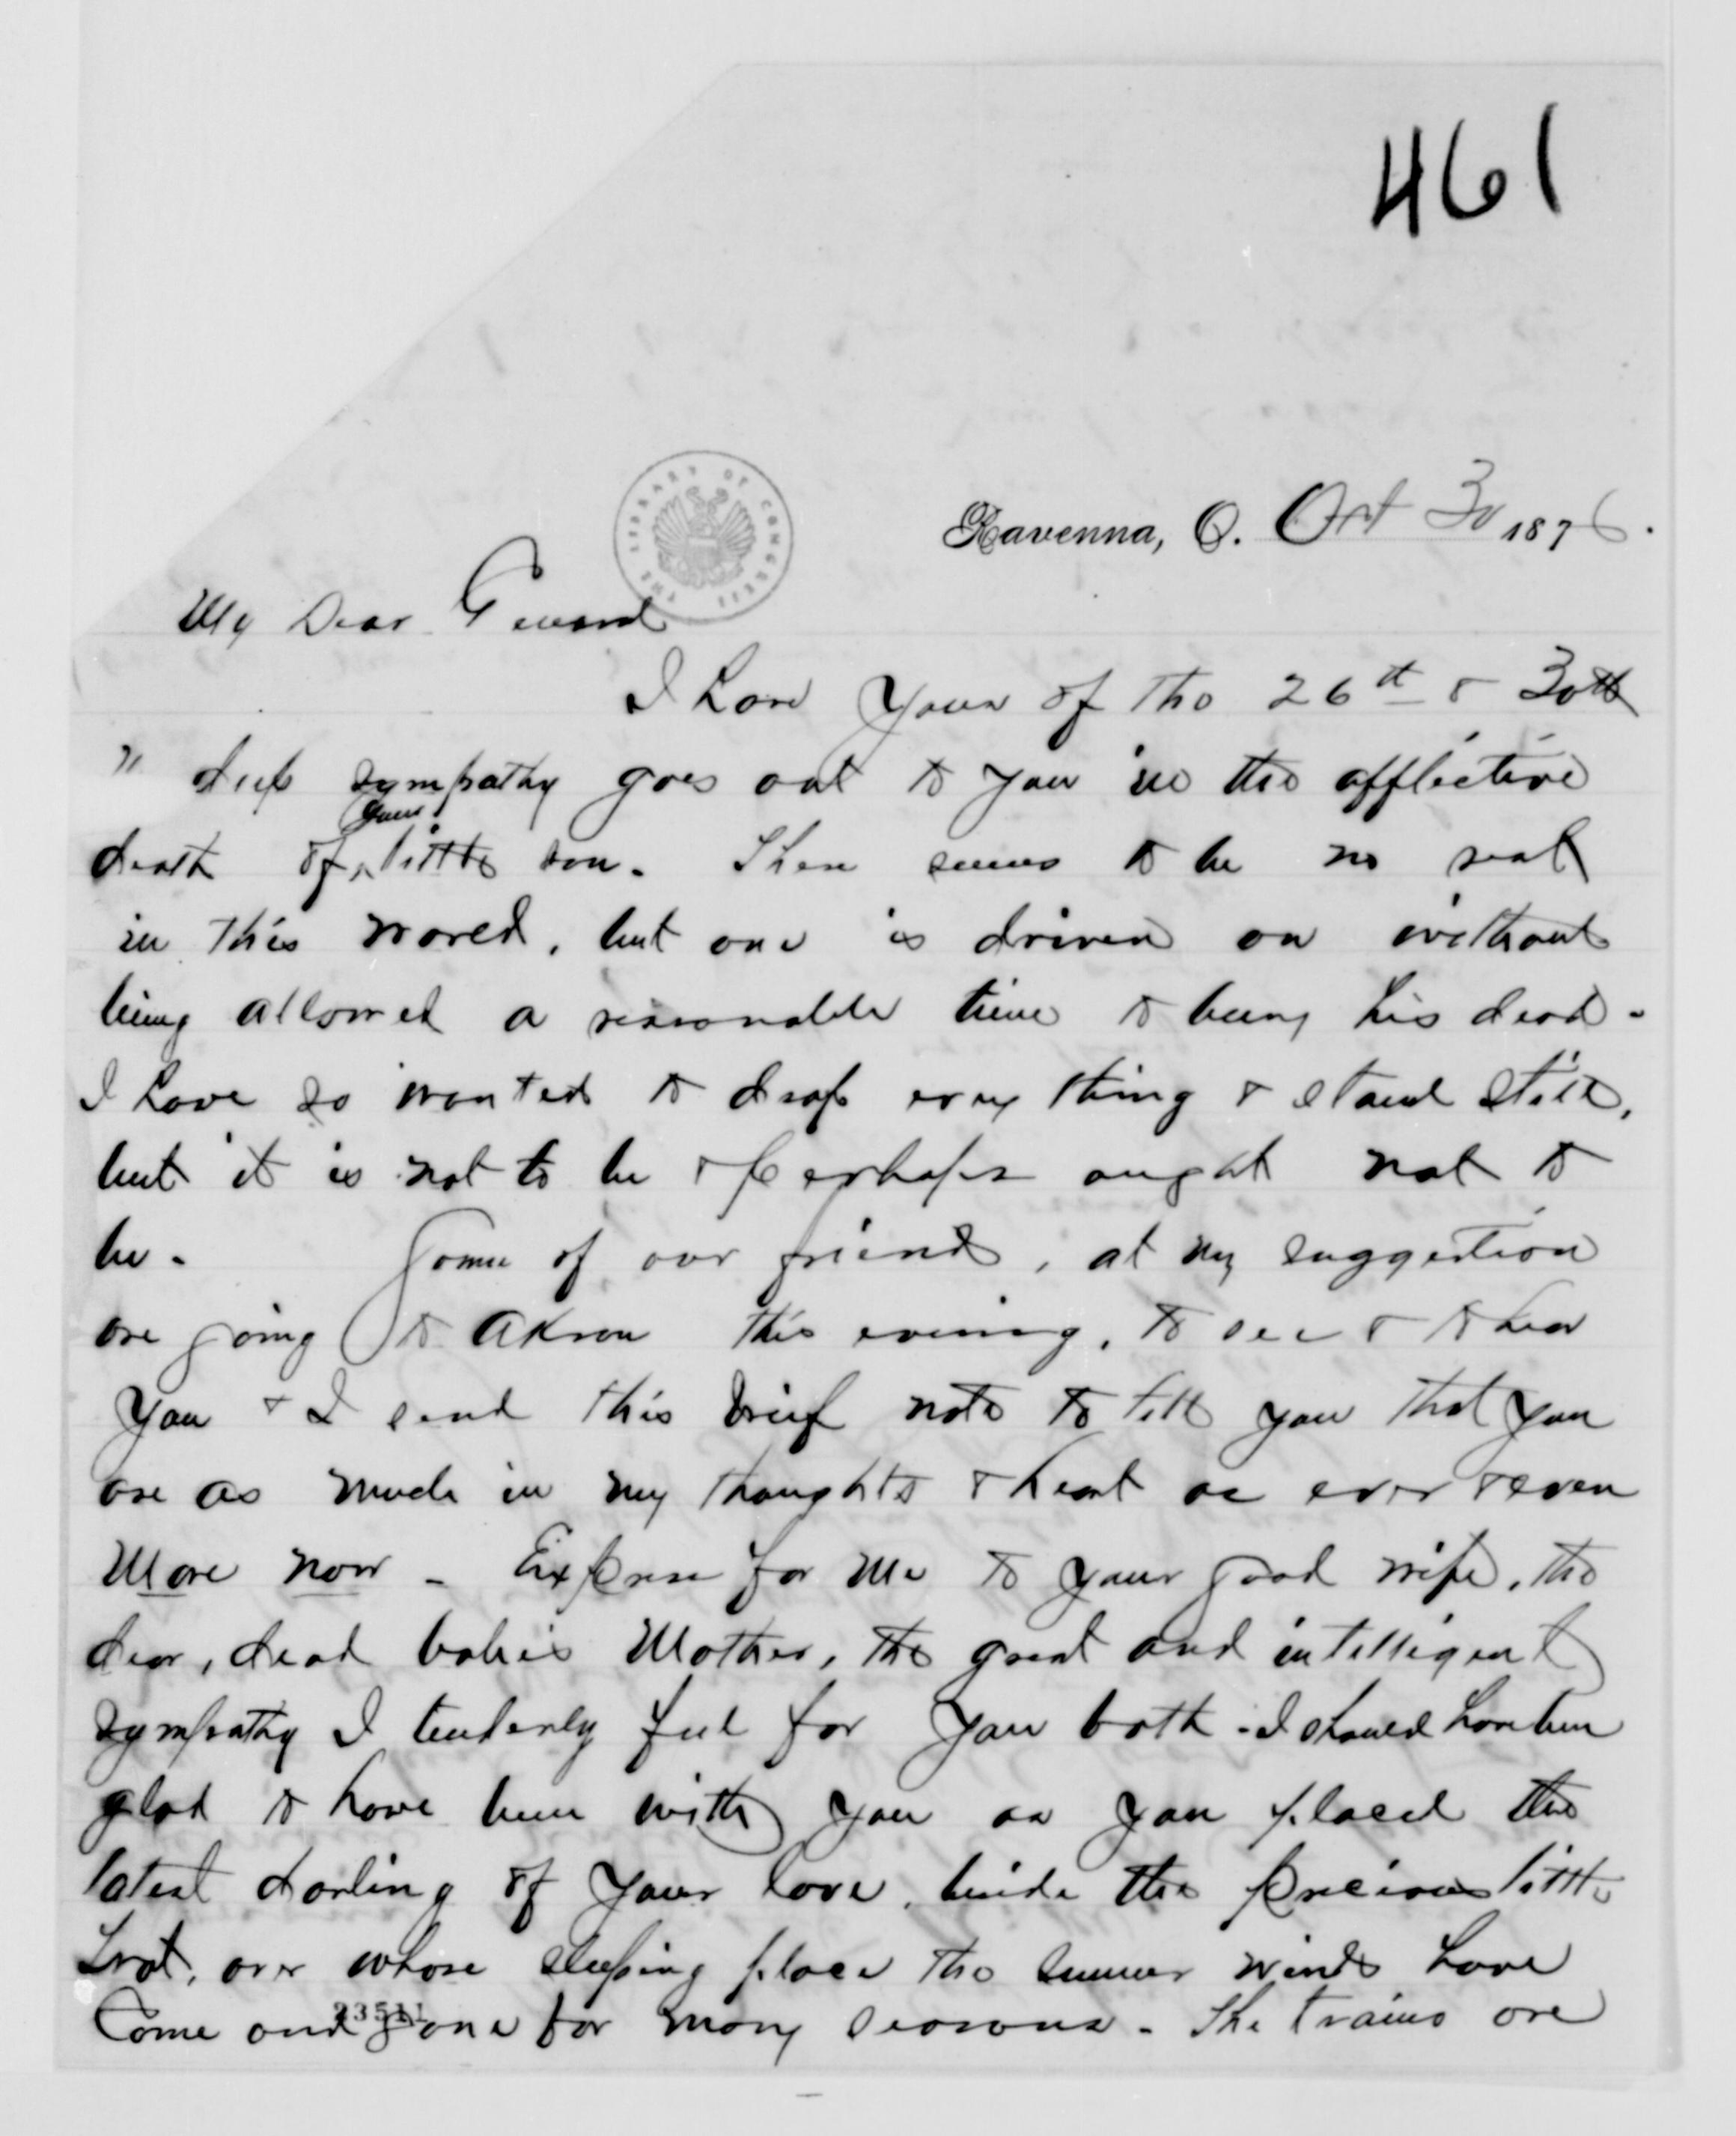 461
THE LIBRARY OF CONGRESS
Ravenna, O. Oct 30 1876.
My Dear General
I have yours of the 26th & 30th
" deep sympathy goes out to you in the afflictive
death of your little son. There seems to be no rest
in this world, but one is driven on without
being allowed a reasonable time to bury his dead.
I have so wanted to drop every thing & stand still,
but it is not to be & perhaps ought not to
be. Some of our friends, at my suggestion
are going to Akron this evening, to see & to hear
you & I send this brief note to tell you that you
are as much in my thoughts & heart as ever & even
more now - Express for me to your good wife, the
dear, dead babies Mother, the great and intelligent
sympathy I tenderly feel for you both - I should have been
glad to have been with you as you placed this
latest darling of your love, beside the precious little
Trot, over whose sleeping place the summer winds have
come and gone for many seasons. The trains are
23511